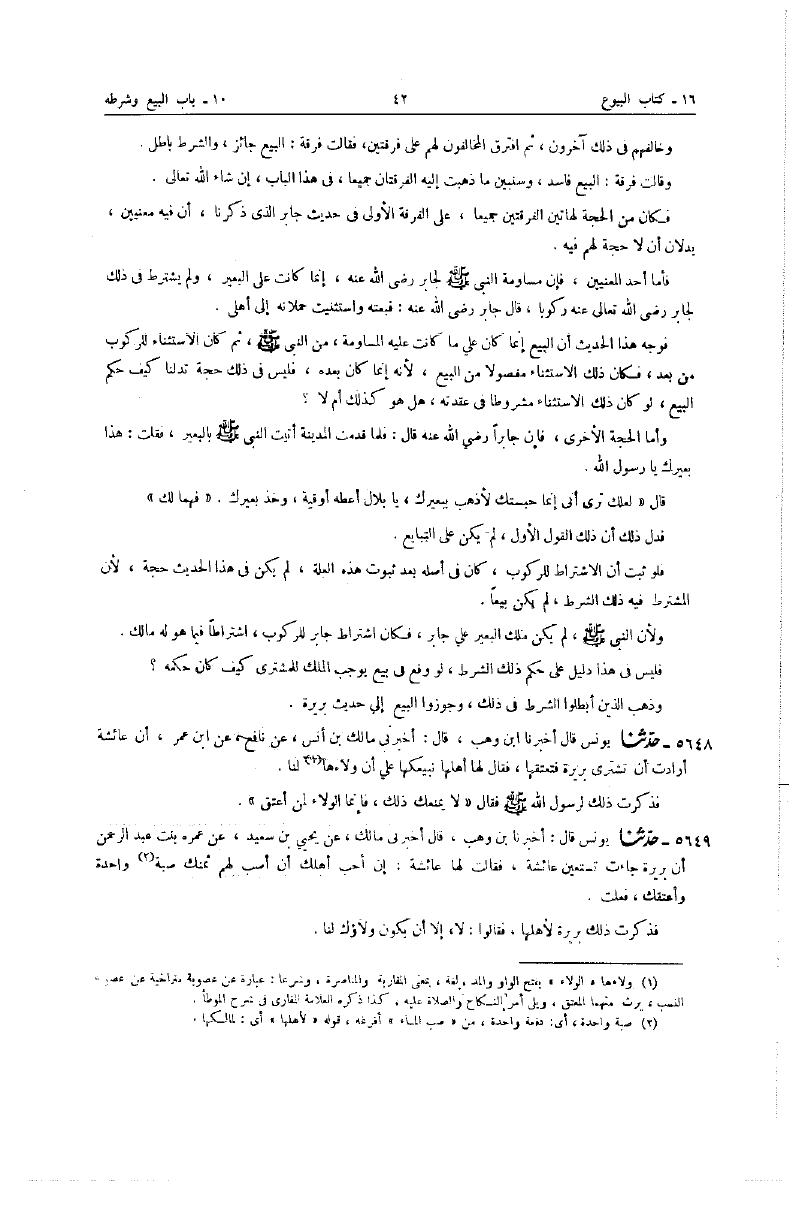 ١٦ - كتاب البيوع ٤٢ ١٠ - باب البيع وشرطه
وخالفهم فى ذلك آخرون ، ثم افترق المخالفون لهم على فرقتين، فقالت فرقة : البيع جائز ، والشرط باطل .
وقالت فرقة : البيع فاسد ، وسنبين ما ذهبت إليه الفرقتان جميعا ، فى هذا الباب ، إن شاء الله تعالى .
فكان من الحجة لهاتين الفرقتين جميعا ، على الفرقة الأولى فى حديث جابر الذى ذكرنا ، أن فيه معنيين ،
يدلان أن لا حجة لهم فيه .
فأما أحد المعنيين ، فإن مساومة النبي ﷺ لجابر رضى الله عنه ، إنما كانت على البعير ، ولم يشترط فى ذلك
لجابر رضى الله تعالى عنه ركوبا ، قال جابر رضى الله عنه : فبعته واستثنيت حملانه إلى أهلى .
فوجه هذا الحديث أن البيع إنما كان علي ما كانت عليه المساومة ، من النبى ﷺ ، ثم كان الاستثناء للركوب
من بعد ، فكان ذلك الاستثناء مفصولا من البيع ، لأنه إنما كان بعده ، فليس فى ذلك حجة تدلنا كيف حكم
البيع ، لو كان ذلك الاستثناء مشروطا فى عقدته ، هل هو كذلك أم لا ؟
وأما الحجة الأخرى ، فإن جابراً رضي الله عنه قال : فلما قدمت المدينة أتيت النبي ﷺ بالبعير ، فقلت : هذا
بعيرك يا رسول الله .
قال « لعلك ترى أنى إنما حبستك لأذهب ببعيرك ، يا بلال أعطه أوقية ، وخذ بعيرك . « فهما لك »
فدل ذلك أن ذلك القول الأول ، لم يكن على التبايع .
فلو ثبت أن الاشتراط للركوب ، كان فى أصله بعد ثبوت هذه العلة ، لم يكن فى هذا الحديث حجة ، لأن
المشترط فيه ذلك الشرط ، لم يكن بيعاً .
ولأن النبي ﷺ ، لم يكن ملك البعير علي جابر ، فكان اشتراط جابر للركوب ، اشتراطاً فيما هو له مالك .
فليس فى هذا دليل على حكم ذلك الشرط ، لو وقع فى بيع يوجب الملك للمشترى كيف كان حكمه ؟
وذهب الذين أبطلوا الشرط فى ذلك ، وجوزوا البيع إلي حديث بريرة .
٥٦٤٨ - حدثنا يونس قال أخبرنا ابن وهب ، قال : أخبرنى مالك بن أنس ، عن نافع عن ابن عمر ، أن عائشة
أرادت أن تشترى بريرة فتعتقها ، فقال لها أهلها نبيعكها علي أن ولاءها(١) لنا .
فذكرت ذلك لرسول الله ﷺ فقال « لا يمنعك ذلك ، فإنما الولاء لمن أعتق » .
٥٦٤٩ - حدثنا يونس قال : أخبرنا بن وهب ، قال أخبرنى مالك ، عن يحيي بن سعيد ، عن عمره بنت عبد الرحمن
أن بريرة جاءت تستعين عائشة ، فقالت لها عائشة : إن أحب أهلك أن أصب لهم ثمنك صبة(٢) واحدة
وأعتقك ، فعلت .
فذكرت ذلك بريرة لأهلها ، فقالوا : لا، إلا أن يكون ولاؤك لنا .
(١) ولاءها « الولاء » بفتح الواو والمد ، لغة ، بمعنى المقاربة والمناصرة ، وشرعا : عبارة عن عصوبة متراخية عن عصوبة
النسب ، يرث منهما المعتق ، ويلى أمر النكاح والصلاة عليه . كذا ذكره العلامة القارى فى شرح الموطأ .
(٢) صبة واحدة ، أى: دفعة واحدة ، من « صب المـاء » أفرغه ، قوله « لأهلها » أى : لمالكها .